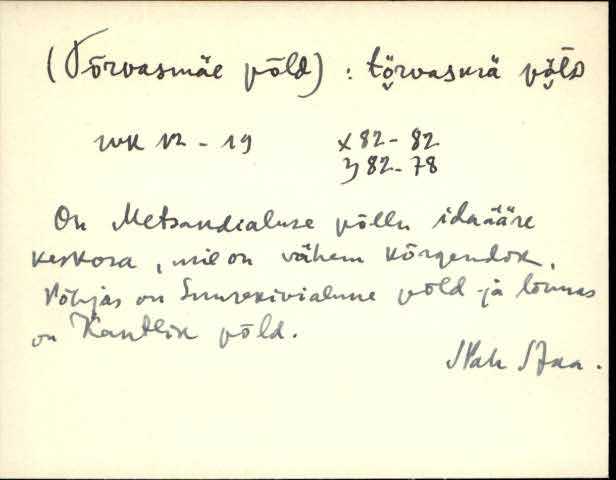 (Tõrvasmäe põld) : tõrvasmä põlD
WK 12 - 19 X 82 - 82
Y 82 - 78
On Metsandialuse põllu idaääre
keskosa, mil on vähem kõrgendik.
Põhjas on Suurekivialune põld ja lõunas
on Kandlik põld.